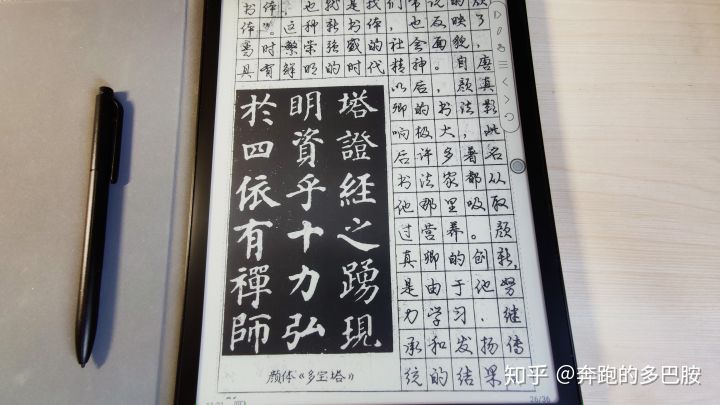 书体，也就是我们常说的颜
体。这种新书体，也反映了
当时繁荣强盛的社会面貌，
具有鲜明的时代精神。自唐
以后，颜真
卿的书法影
响极大，此
后许多著名
书法家都从
他那里吸取
过营养。颜
真卿的创新，
是由于他努
力学习，继
承和发扬传
统的结果
塔證經之踴現
明資乎十力弘
於四依有禪師
颜体《多宝塔》
26/36
知乎 @奔跑的多巴胺